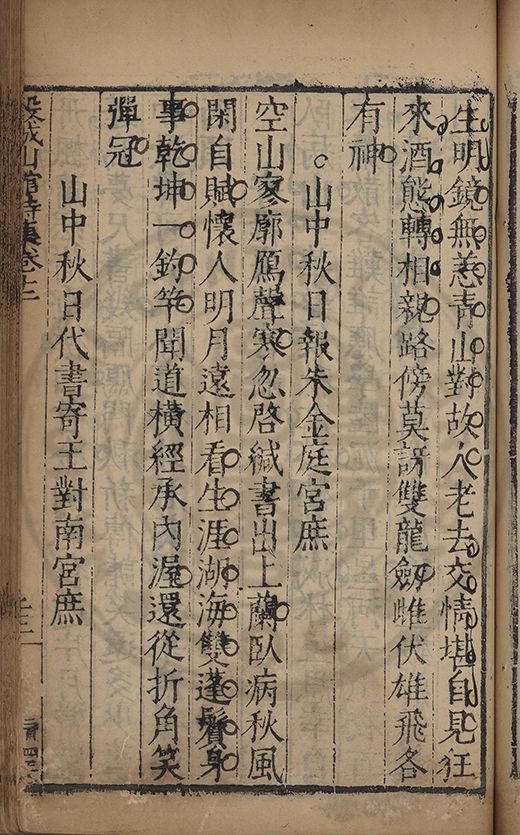 生明鏡無恙青山對故人老去交情堪自見狂
來酒態轉相親路傍莫訝雙龍劒雌伏雄飛各
有神
山中秋日報朱金庭宮庶
空山寥廓鴈聲寒忽啓緘書出上蘭臥病秋風
閑自賦懷人明月遠相看生涯湖海雙蓬鬢身
事乾坤一釣竿聞道橫經承內渥還從折角笑
彈冠
山中秋日代書寄王對南宮庶
穀城山館詩集卷十二